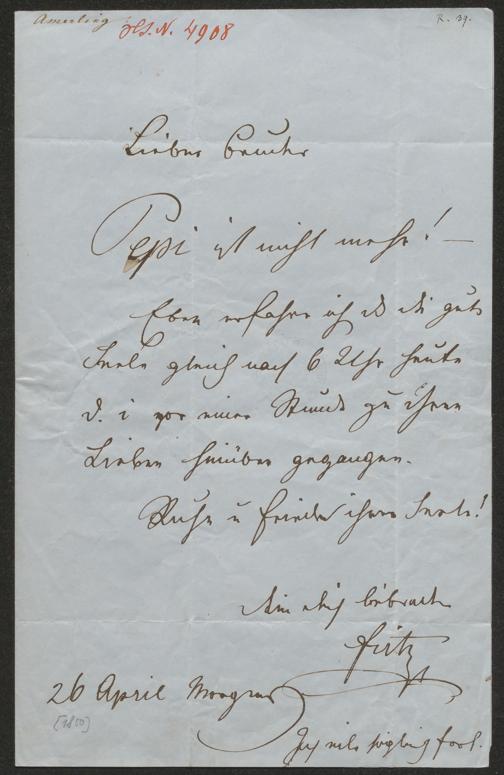 Amerling
H.I.N. 4908
R. 39.
Lieber Bruder
Pepi ist nicht mehr! —
Eben erfahre ich daß die gute
Seele gleich nach 6 Uhr heute
d. i. vor einer Stunde zu ihren
Lieben hinüber gegangen.
Ruhe u Frieden ihrer Seele!
Dein dich
Fritz
26 April Morgens
[1880]
Ich